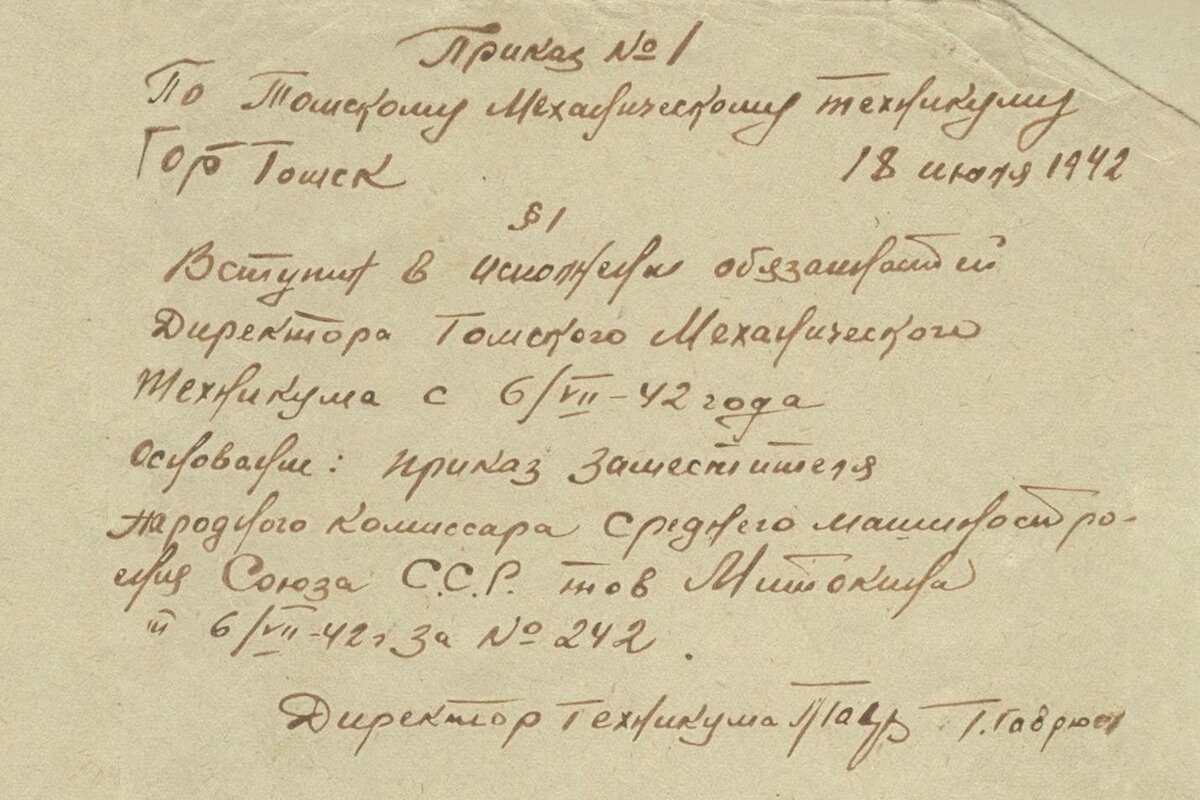 Приказ № 1
По Томскому Механическому техникуму
Гор Томск 18 июля 1942
§ 1
Вступил в исполнении обязаностей
Директора Томского Механического
Техникума с 6/VII-42 года
Основание: приказ Заместителя
Народного Комиссара Среднего машиностро-
ения Союза С.С.Р. тов
6/VII-42г за № 242.
Директор Техникума